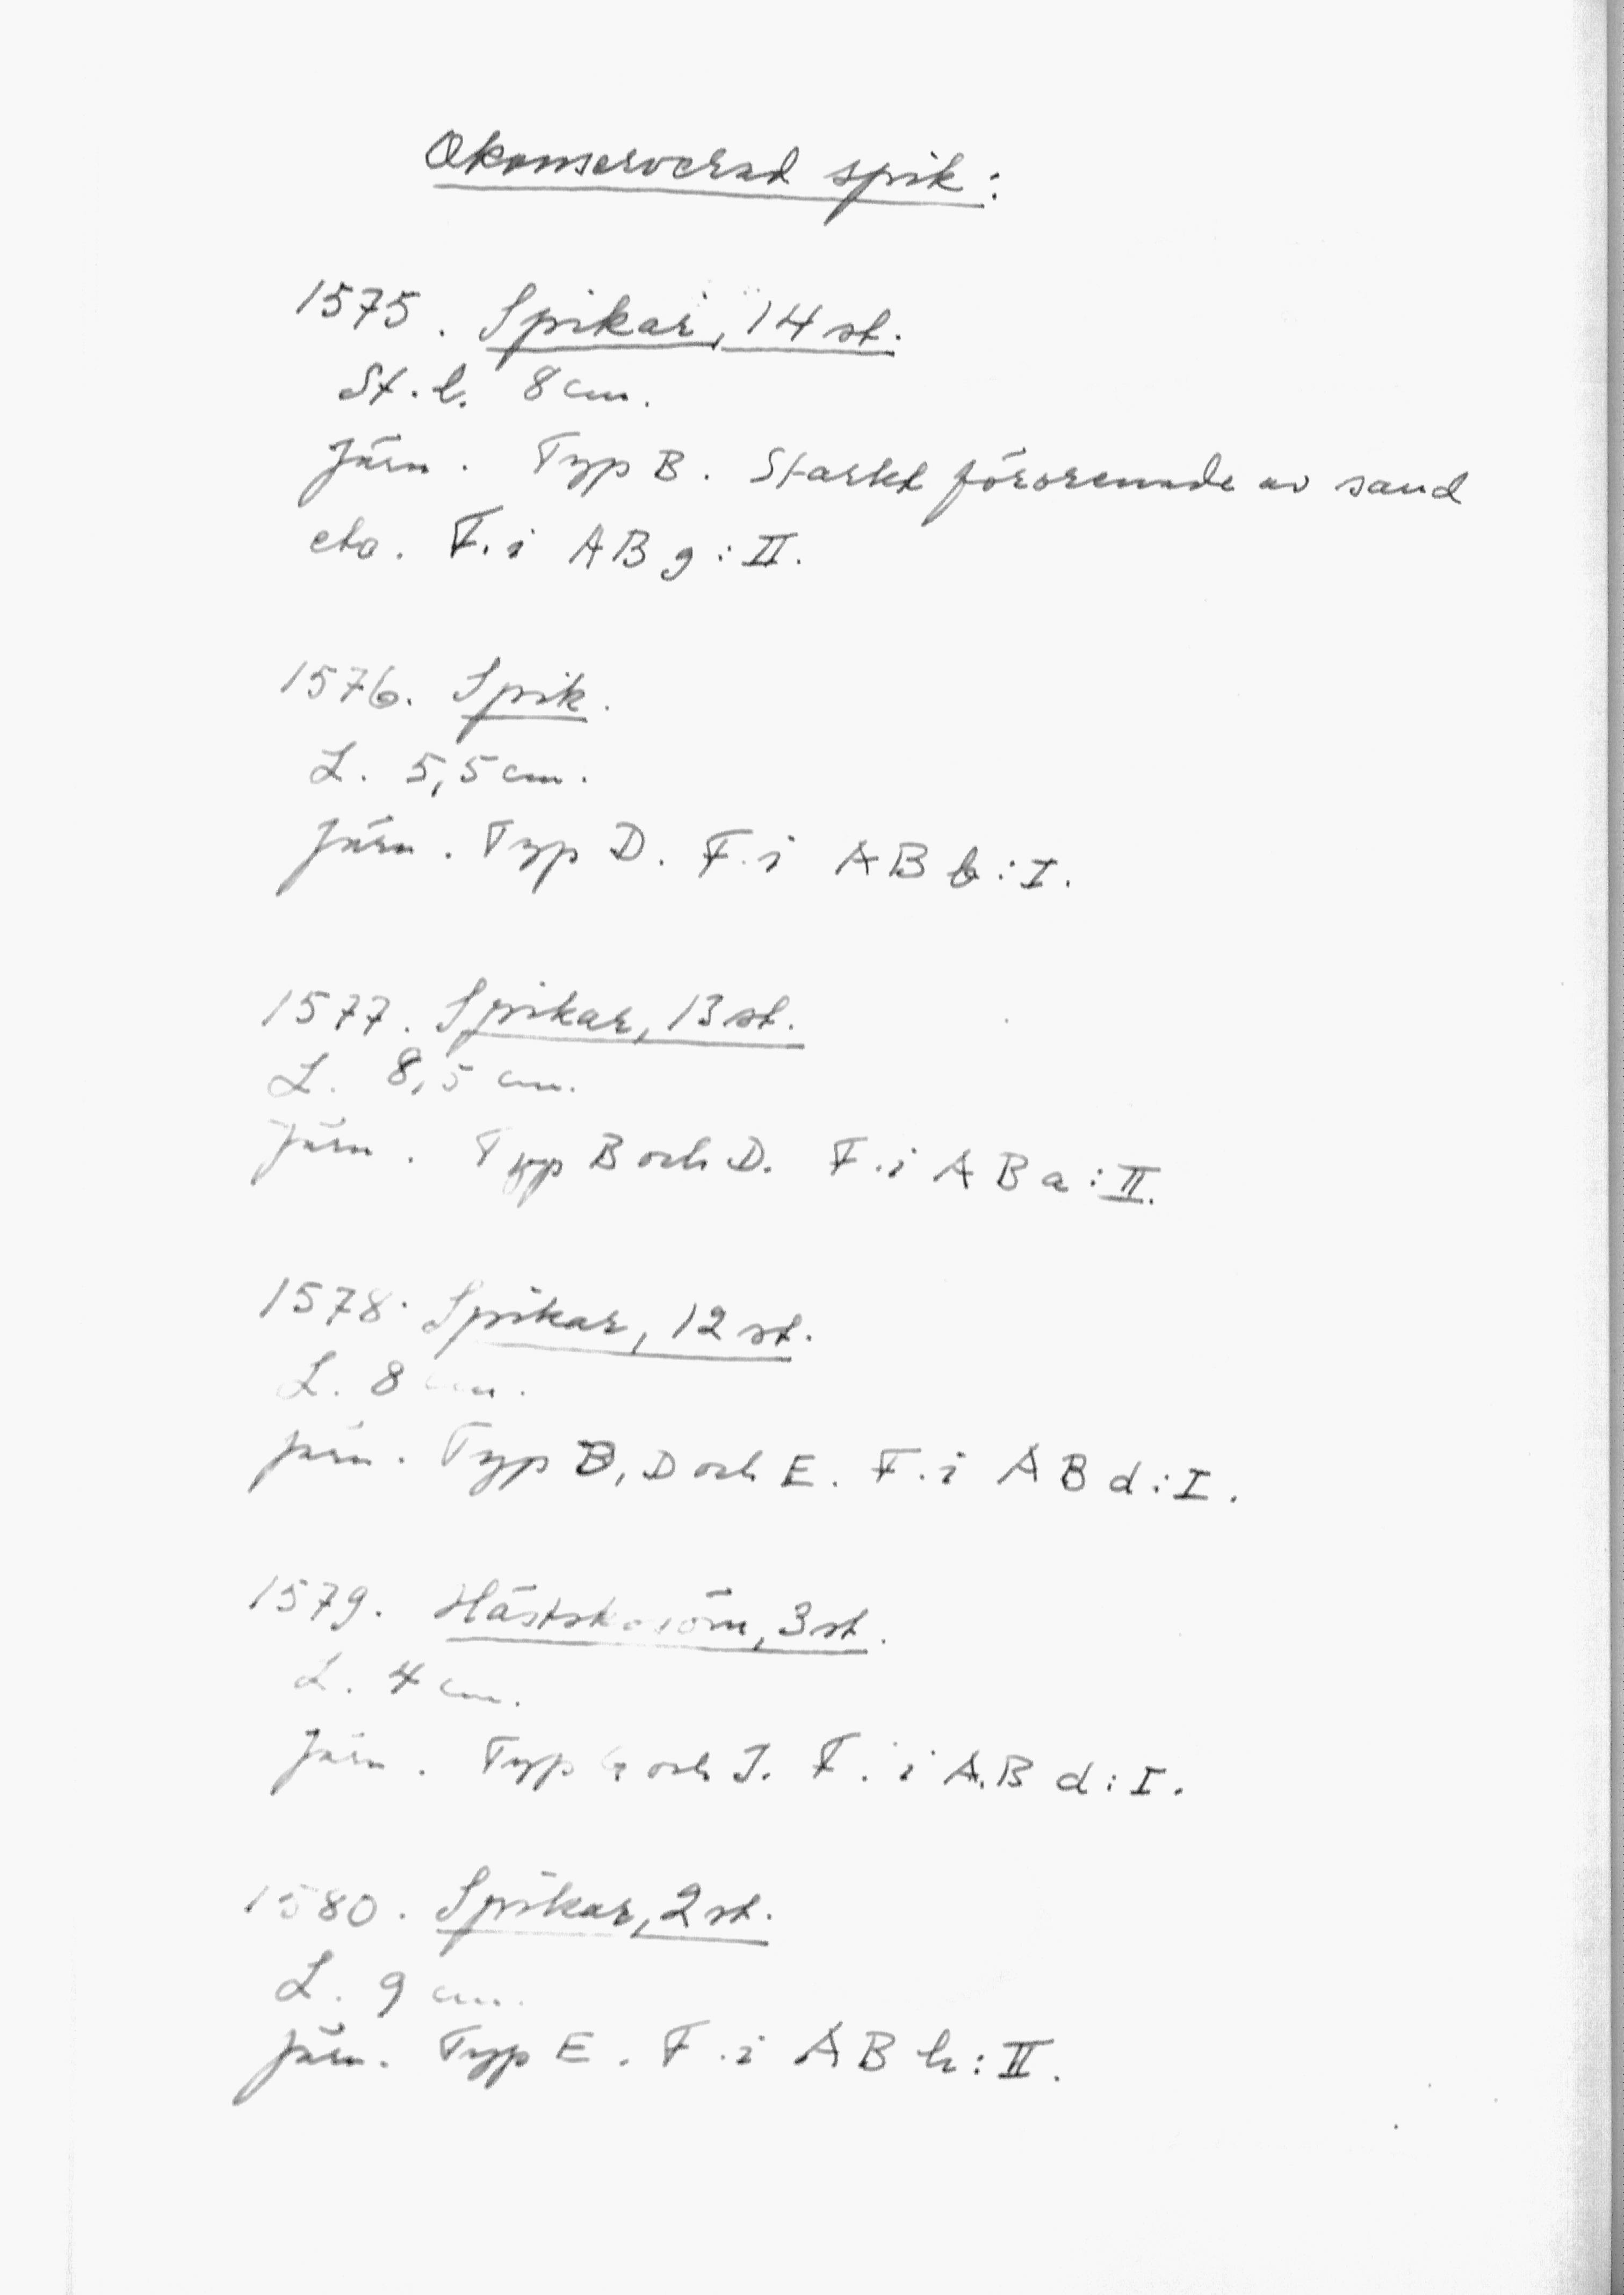 Okonserverad spik:
1575. Spikar, 14 st.
St. l. 8 cm.
Järn. Typ B. Starkt förorenade av sand
etc. F. i A B g : II.
1576. Spik.
L. 5,5 cm.
Järn. Typ D. F. i A B b : I.
1577. Spikar, 13 st.
L. 8,5 cm.
Järn. Typ B och D. F. i A B a : II.
1578. Spikar, 12 st.
L. 8 cm.
Järn. Typ B, D och E. F. i A B d : I.
1579. Hästskosöm, 3 st.
L. 4 cm.
Järn. Typ och J. F. i A B d : I.
1580. Spikar, 2 st.
L. 9 cm.
Järn. Typ E. F. i A B h : II.